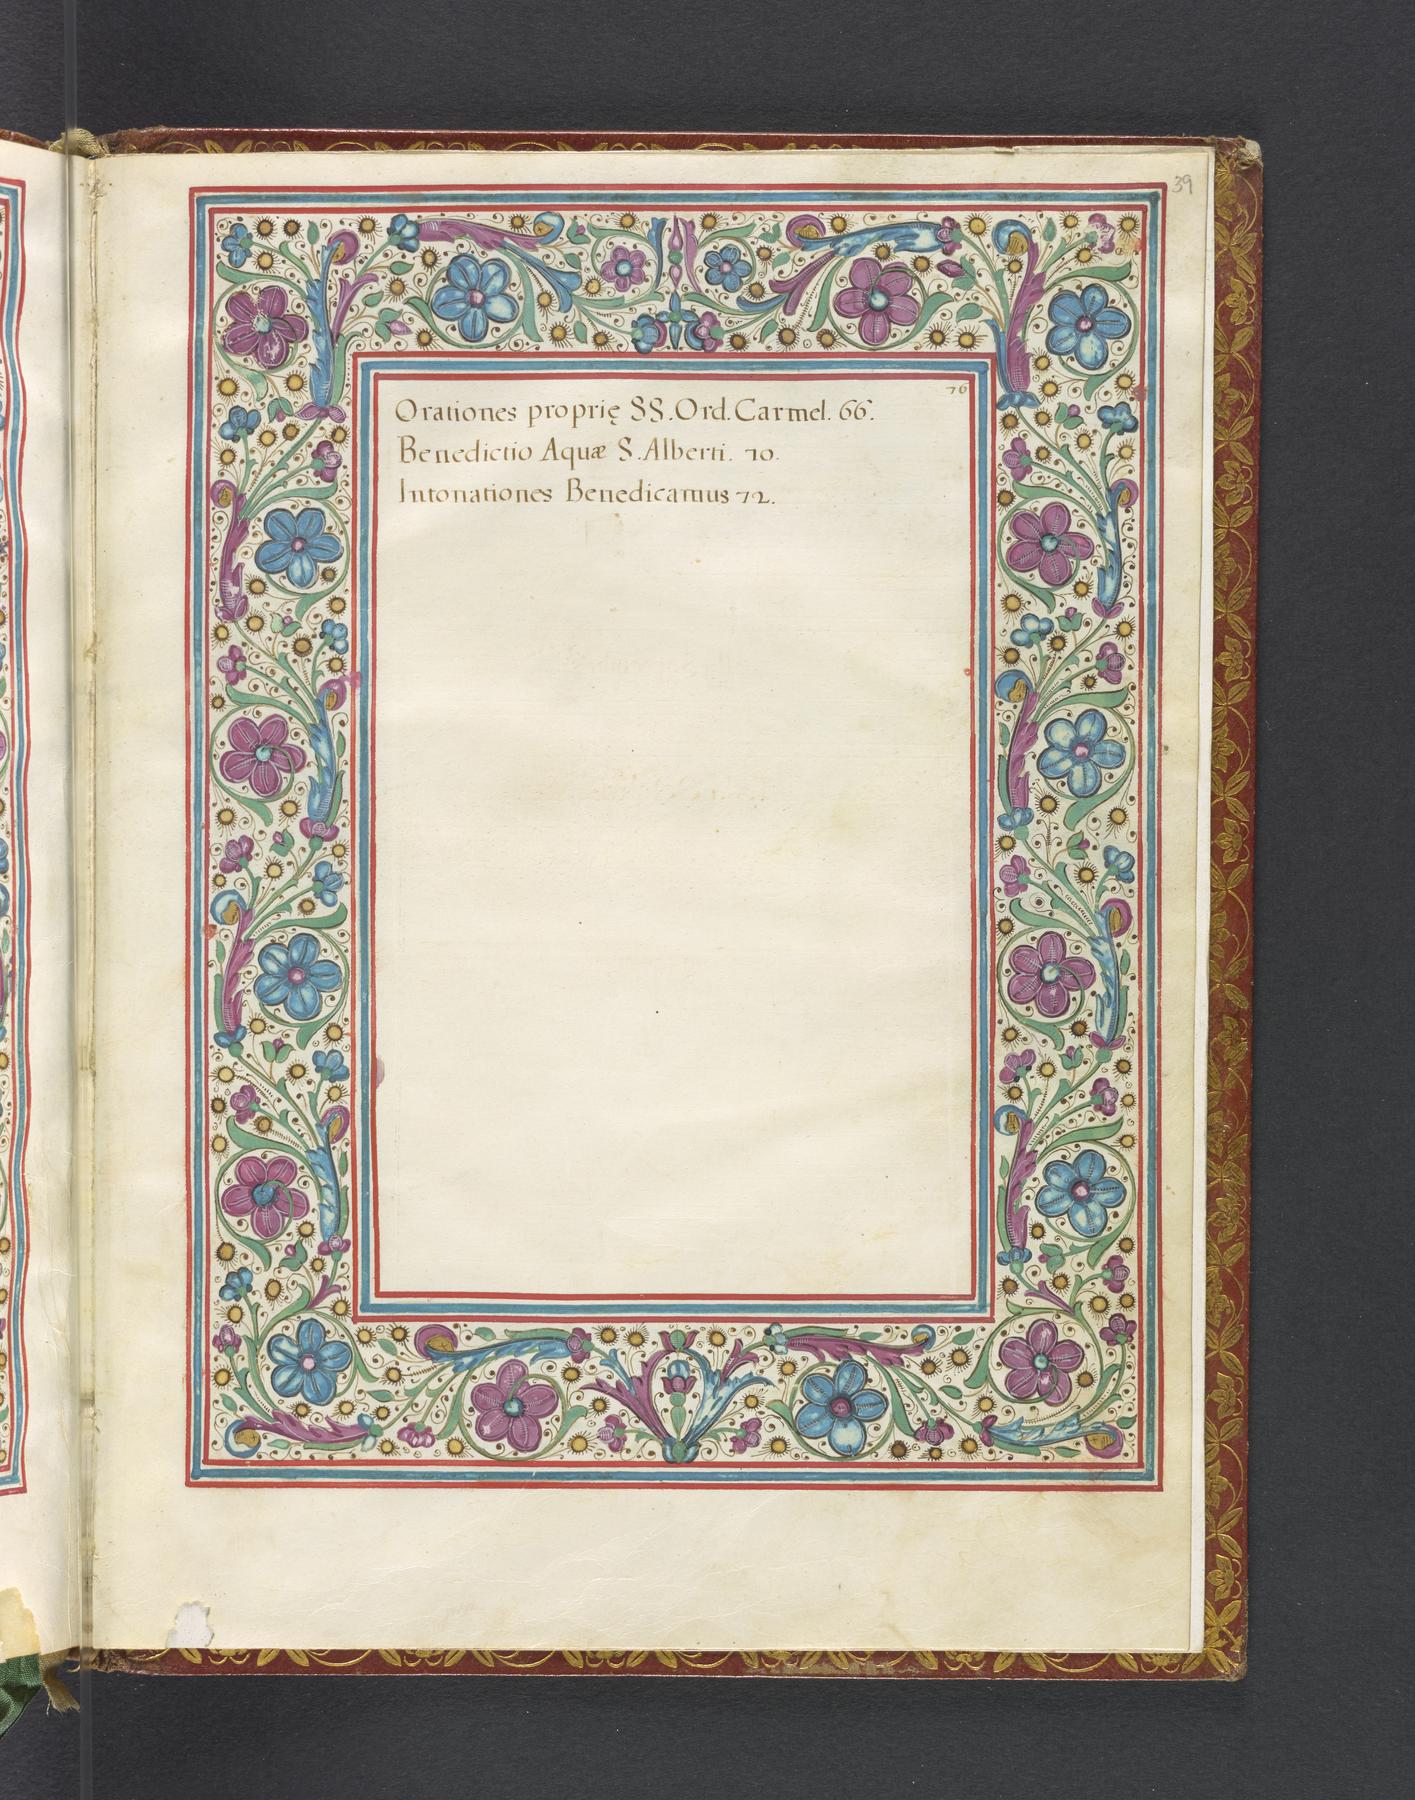 39
76
Orationes proprię SS. Ord. Carmel. 66.
Benedictio Aquæ S. Alberti. 70.
Intonationes Benedicamus 72.